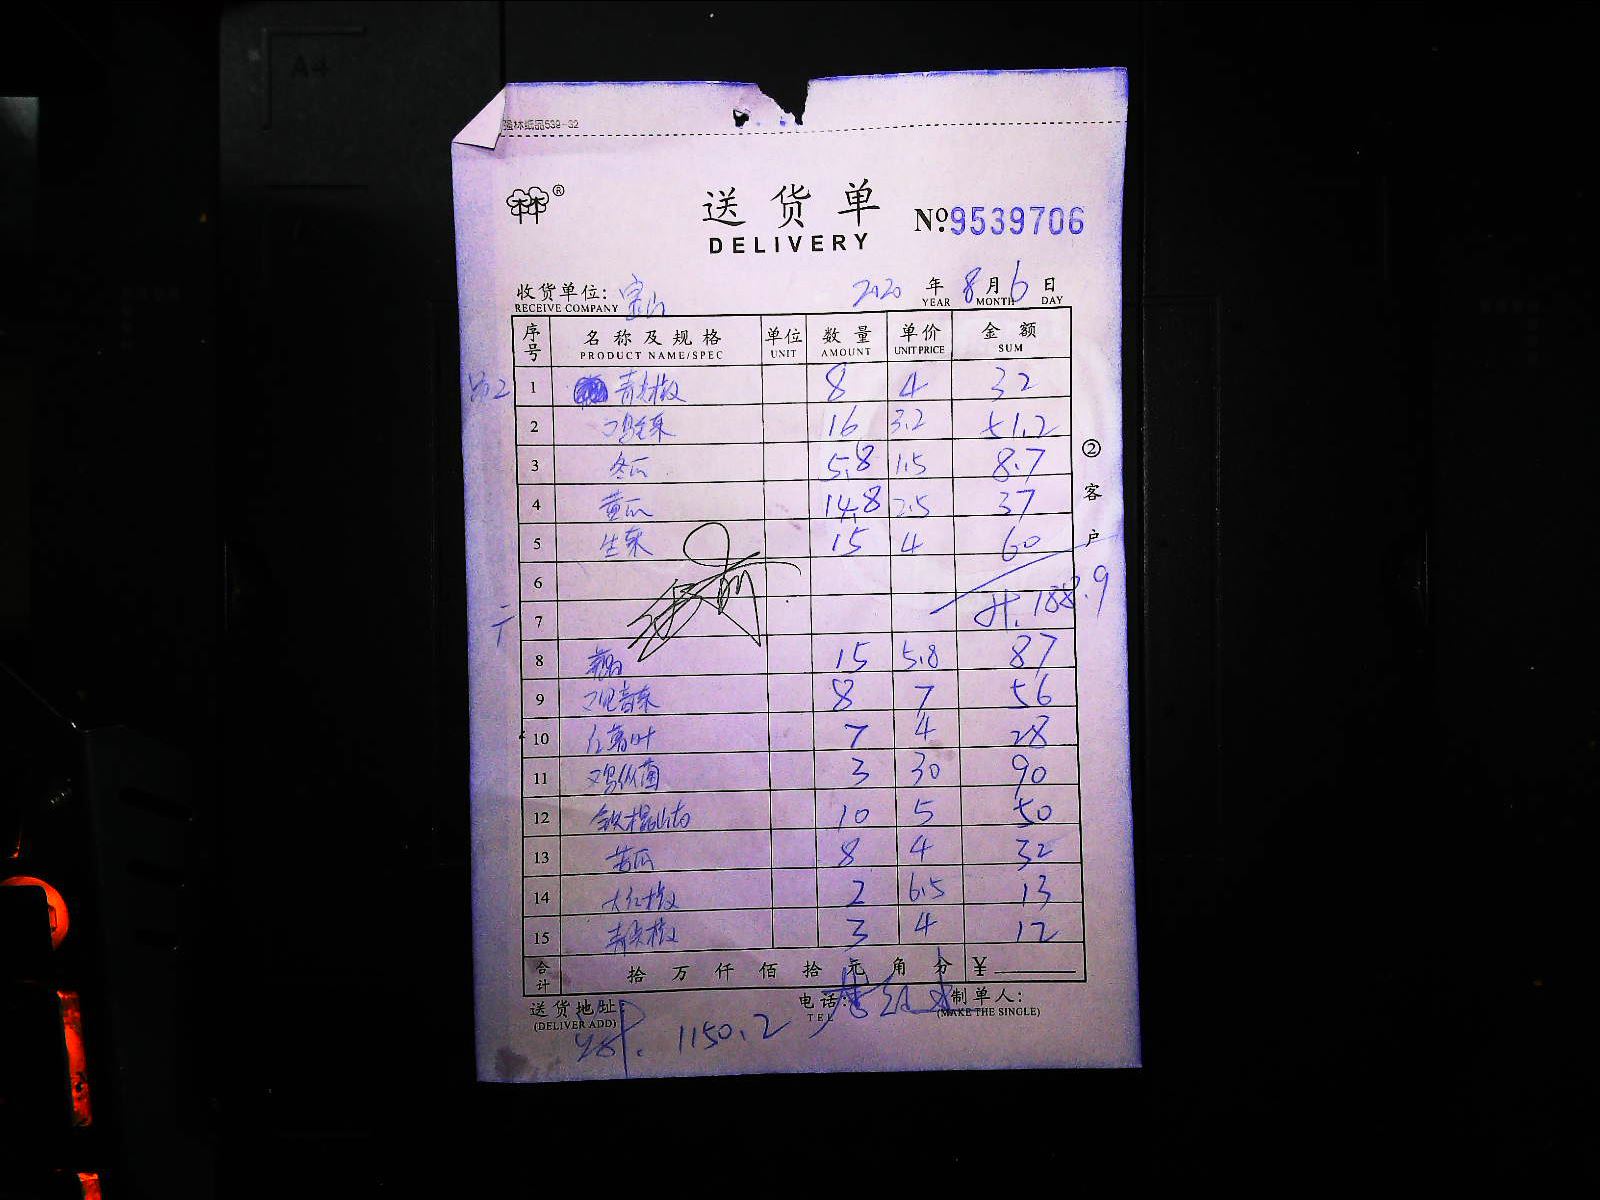 强林纸品539-32
林®
送货单 No:9539706
DELIVERY
收货单位: 宝山 2020 年 8 月 6 日
RECEIVE COMPANY YEAR MONTH DAY
序号 名称及规格 单位 数量 单价 金额
PRODUCT NAME/SPEC UNIT AMOUNT UNIT PRICE SUM
1 青尖椒 8 4 32
2 16 3.2 51.2
3 冬瓜 5.8 1.5 8.7
② 客户
4 黄瓜 14.8 2.5 37
5 生菜 15 4 60
6
7 计.188.9
8 15 5.8 87
9 观音菜 8 7 56
10 7 4 28
11 鸡枞菌 3 30 90
12 铁棍山药 10 5 50
13 苦瓜 8 4 32
14 大红椒 2 6.5 13
15 青尖椒 3 4 12
合计 拾 万 仟 佰 拾 元 角 分 ¥
送货地址: 电话: 制单人:
(DELIVER ADD) TEL (MAKE THE SINGLE)
1150.2